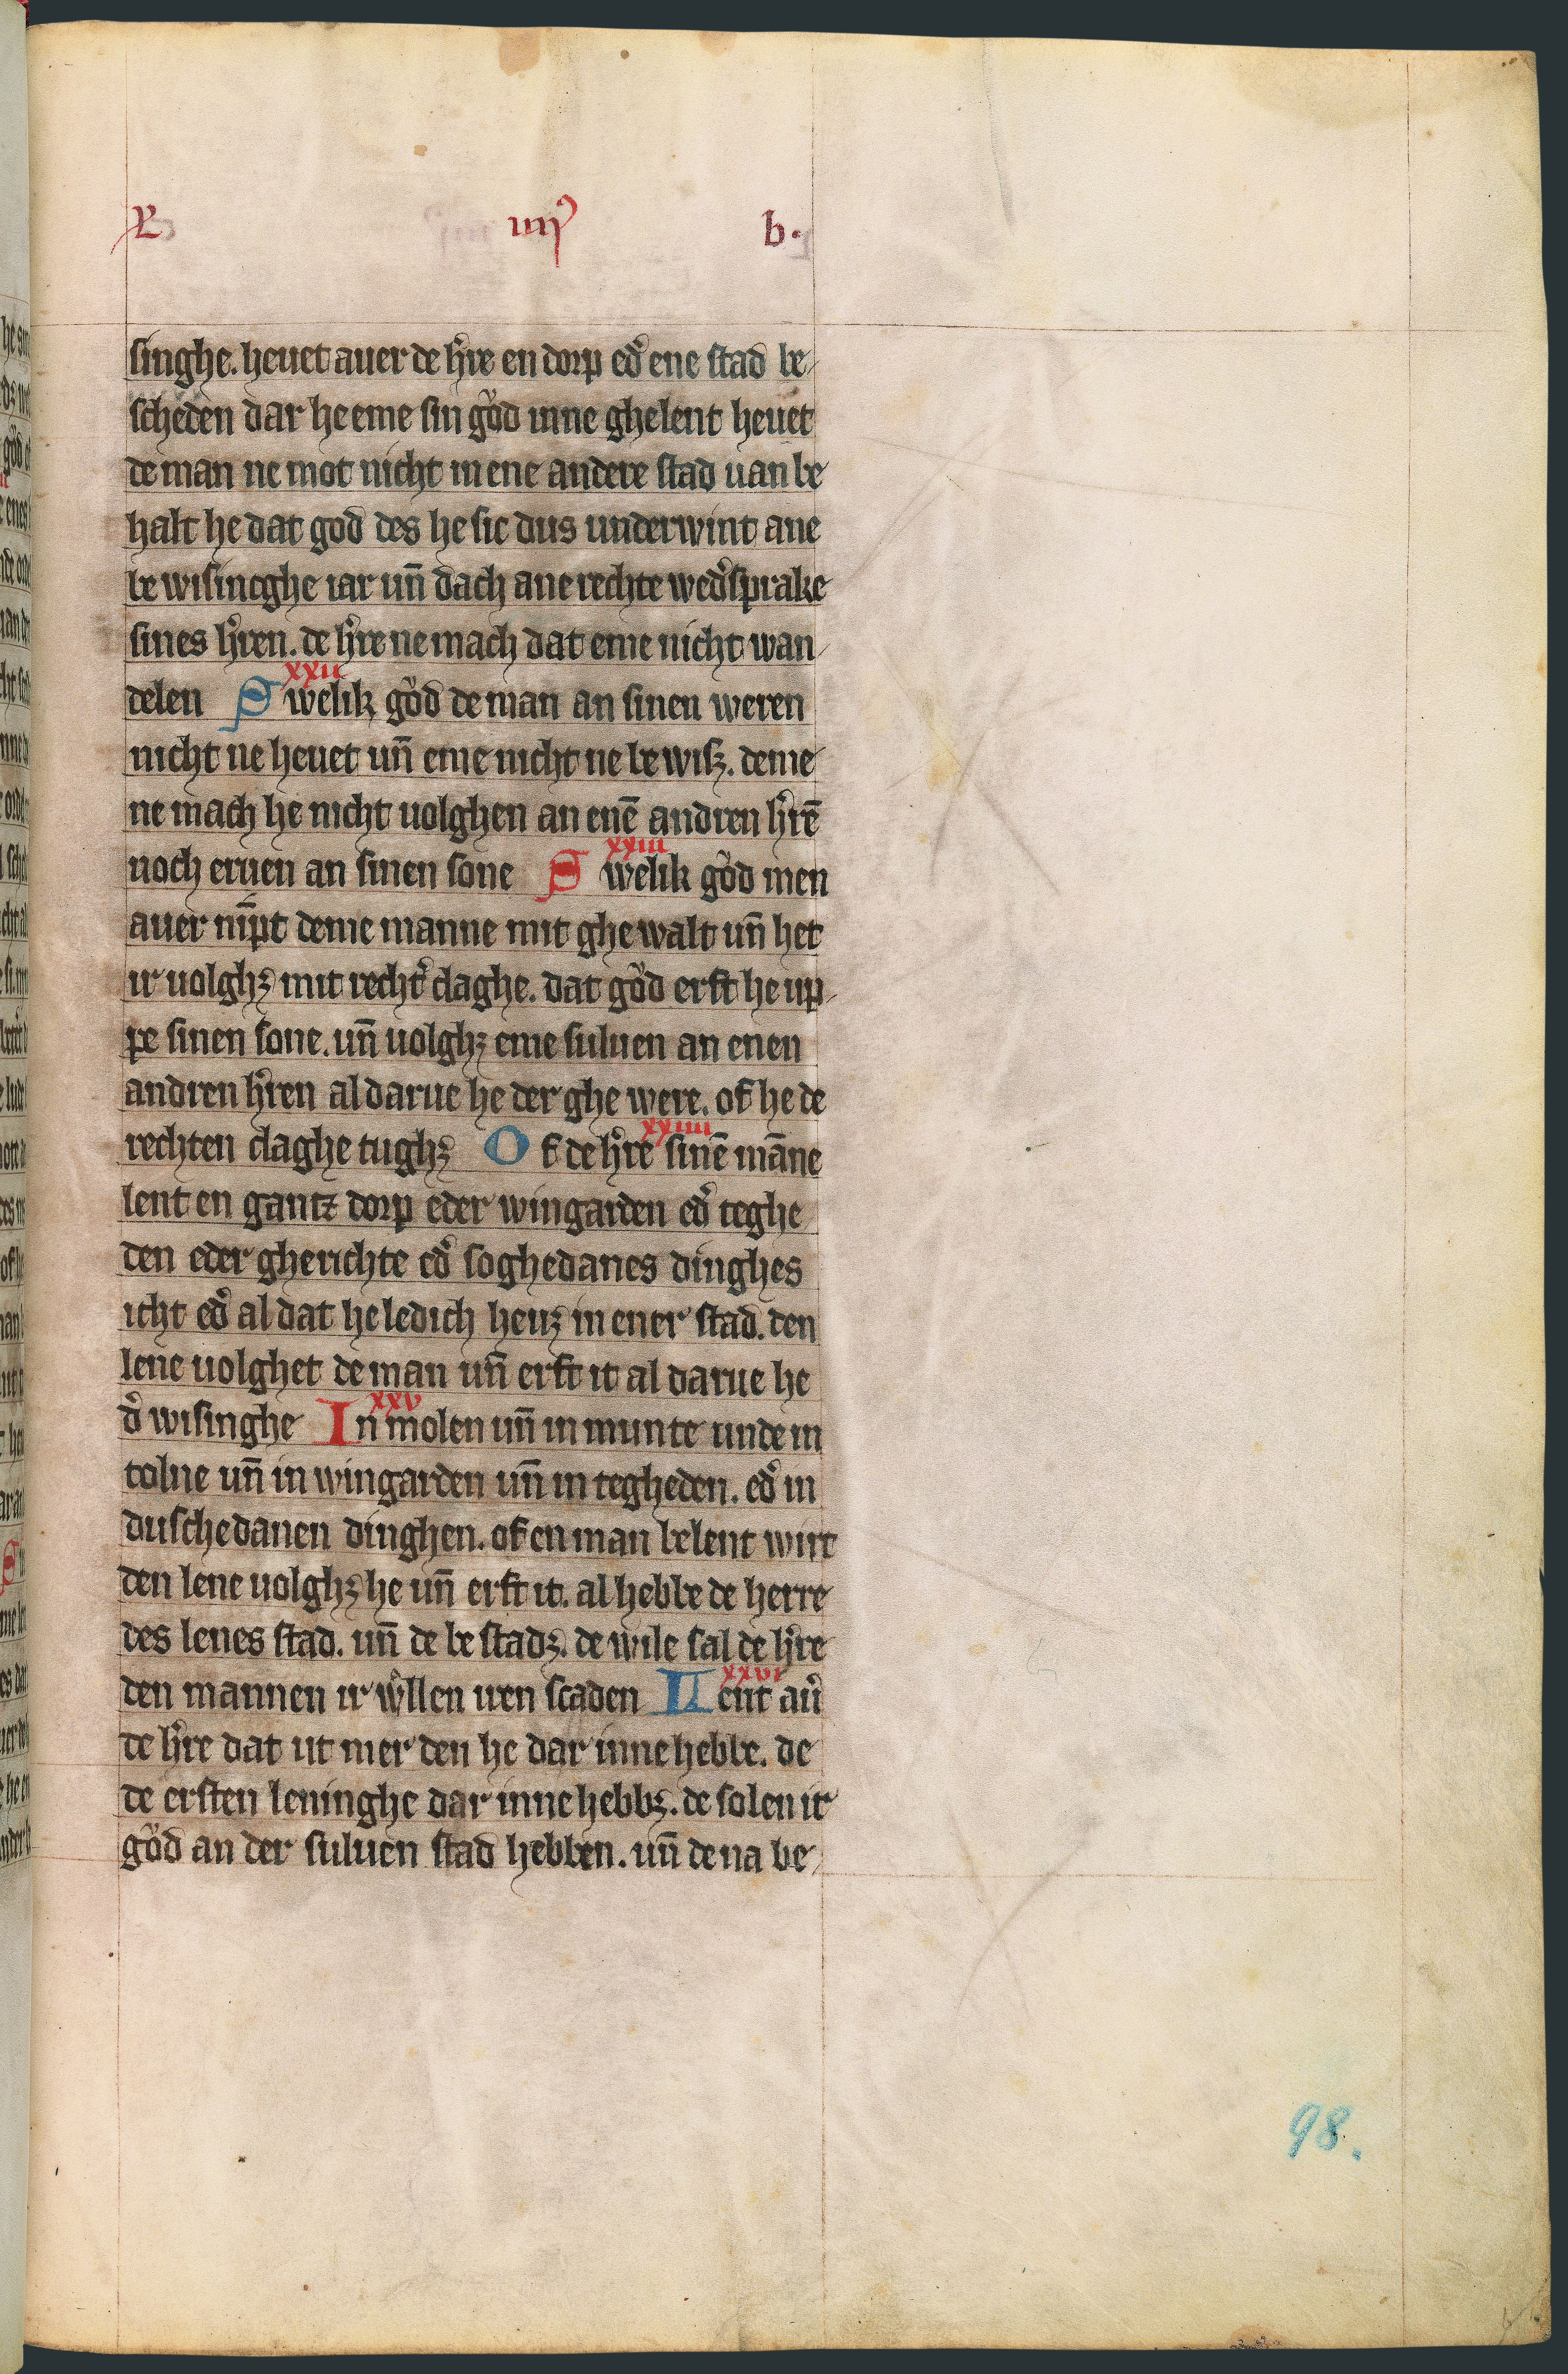 L iiii b.
singhe. heuet auer de h̾re en dorp ed̾ ene stad be-
scheden dar he eme sin gůd inne ghelent heuet
de man ne mot nicht in ene andere stad uan be
halt he dat god des he sic dus underwint ane
be wisincghe iar un̄ dach ane rechte wed̾sprake
sines h̾ren. de h̾re ne mach dat eme nicht wan-
xxii
delen Swelik gůd de man an sinen weren
nicht ne heuet un̄ eme nicht ne be wisꝫ. deme
ne mach he nicht uolghen an enē andren h̾rē
xxiii
noch eruen an sinen sone Swelik gůd men
auer nīpt deme manne mit ghe walt un̄ het
ir uolghꝫ mit recht̾ claghe. dat gůd erft he up-
pe sinen sone. un̄ uolghꝫ eme suluen an enen
andren h̾ren al darue he der ghe were. of he de
xxiiii
rechten claghe tughꝫ Of de h̾re sinē māne
lent en gantz dorp eder wingarden ed̾ teghe
den eder gherichte ed̾ soghedanes dinghes
icht ed̾ al dat he ledich heuꝫ in ener stad. den
lene uolghet de man un̄ erft it al darue he
xxv
d̾ wisinghe In molen un̄ in munte unde in
tolne un̄ in wingarden un̄ in tegheden. ed̾ in
duschedanen dinghen. of en man belent wirt
den lene uolghꝫ he un̄ erft it. al hebbe de herre
des lenes stad. un̄ de be stadꝫ. de wile sal de h̾re
xxvi
den mannen ir wͦllen iren scaden Lent au̾
de h̾re dat ut mer den he dar inne hebbe. de
de ersten leninghe dar inne hebbꝫ. de solen ir
gůd an der suluen stad hebben. un̄ de na be-
98.